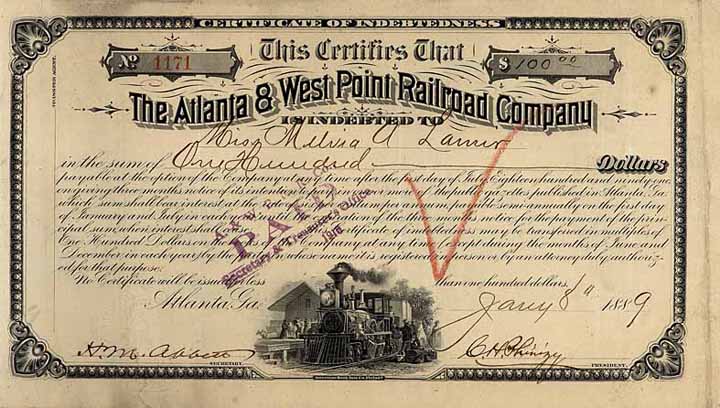 CERTIFICATE OF INDEBTEDNESS
TRANSFER AGENT.
No 1171
This Certifies That
$ 100.00
The Atlanta & West Point Railroad Company
IS INDEBTED TO
Miss A. Lanier
in the sum of One Hundred Dollars
payable at the option of the Company at any time after the first day of July Eighteen hundred and ninety One
on giving three months notice of its intention by in one or more of the public gazettes published in Atlanta Ga
which sum shall bear interest at the rate of per annum payable semi-annually on the first day
of January and July in each year until the expiration of the three months notice for the payment of the prin
cipal sum, when interest shall cease. Certificate of indebtedness may be transferred in multiples of
One Hundred Dollars on the Company at any time except during the months of June and
December in each year, by the person in whose name it is registered in person or by an attorney duly authoriz
ed for that purpose.
No Certificate will be issued for less than one hundred dollars.
Atlanta, Ga. Jany 8th 1889
A. & W. P. R. R. Co.
PAID
Secretary & Treasurer's Office
1916
H. M. Abbett
SECRETARY.
C. H. Phinizy
PRESIDENT.